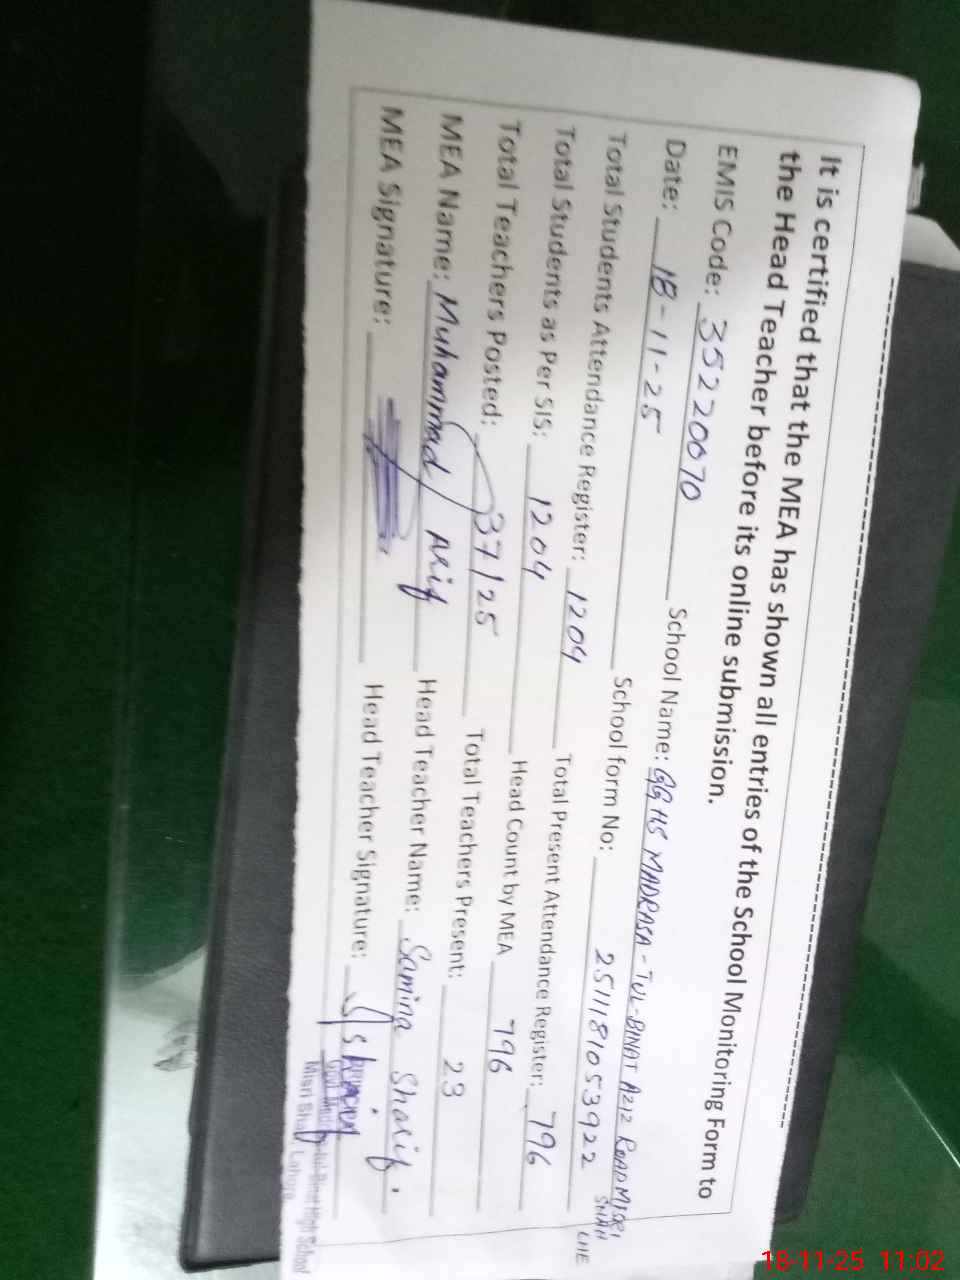 It is certified that the MEA has shown all entries of the School Monitoring Form to
the Head Teacher before its online submission.
EMIS Code: 35220070 School Name: GGHS MADRASA-TUL-BINAT AZIZ ROAD MISRI SHAH LHE
Date: 18-11-25 School form No: 2511181053922
Total Students Attendance Register: 1204 Total Present Attendance Register: 796
Total Students as Per SIS: 1204 Head Count by MEA 796
Total Teachers Posted: 37/25 Total Teachers Present: 23
MEA Name: Muhammad Arif Head Teacher Name: Samina Sharif.
MEA Signature: Head Teacher Signature:
-tul-Binat High School
Misri Shah Lahore
18-11-25 11:02